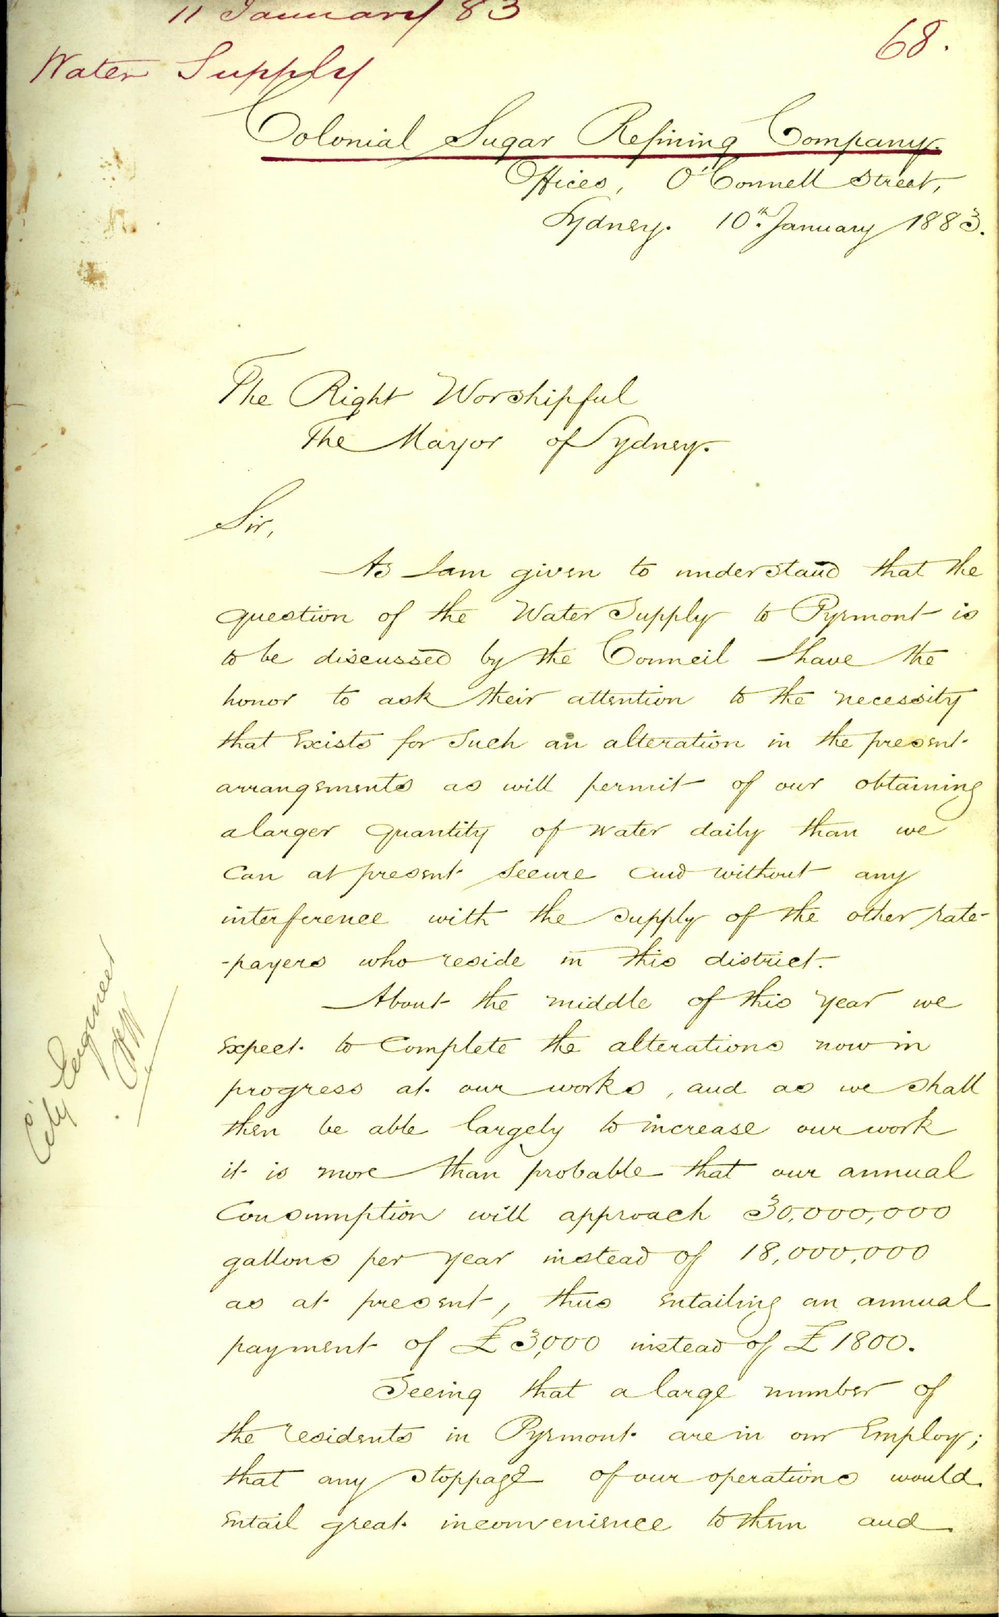 11 January 83
68.
Water Supply
Colonial Sugar Refining Company.
Offices, O'Connell Street,
Sydney. 10th January 1883.
The Right Worshipful
The Mayor of Sydney.
Sir,
As I am given to understand that the
question of the Water Supply to Pyrmont is
to be discussed by the Council I have the
honor to ask their attention to the necessity
that exists for such an alteration in the present
arrangements as will permit of our obtaining
a larger quantity of water daily than we
can at present secure and without any
interference with the supply of the other rate-
-payers who reside in this district.
About the middle of this year we
expect to complete the alterations now in
progress at our works, and as we shall
then be able largely to increase our work
it is more than probable that our annual
consumption will approach 30,000,000
gallons per year instead of 18,000,000
as at present, thus entailing an annual
payment of £3,000 instead of £1800.
Seeing that a large number of
the residents in Pyrmont are in our employ;
that any stoppage of our operations would
entail great inconvenience to them and
City Engineer